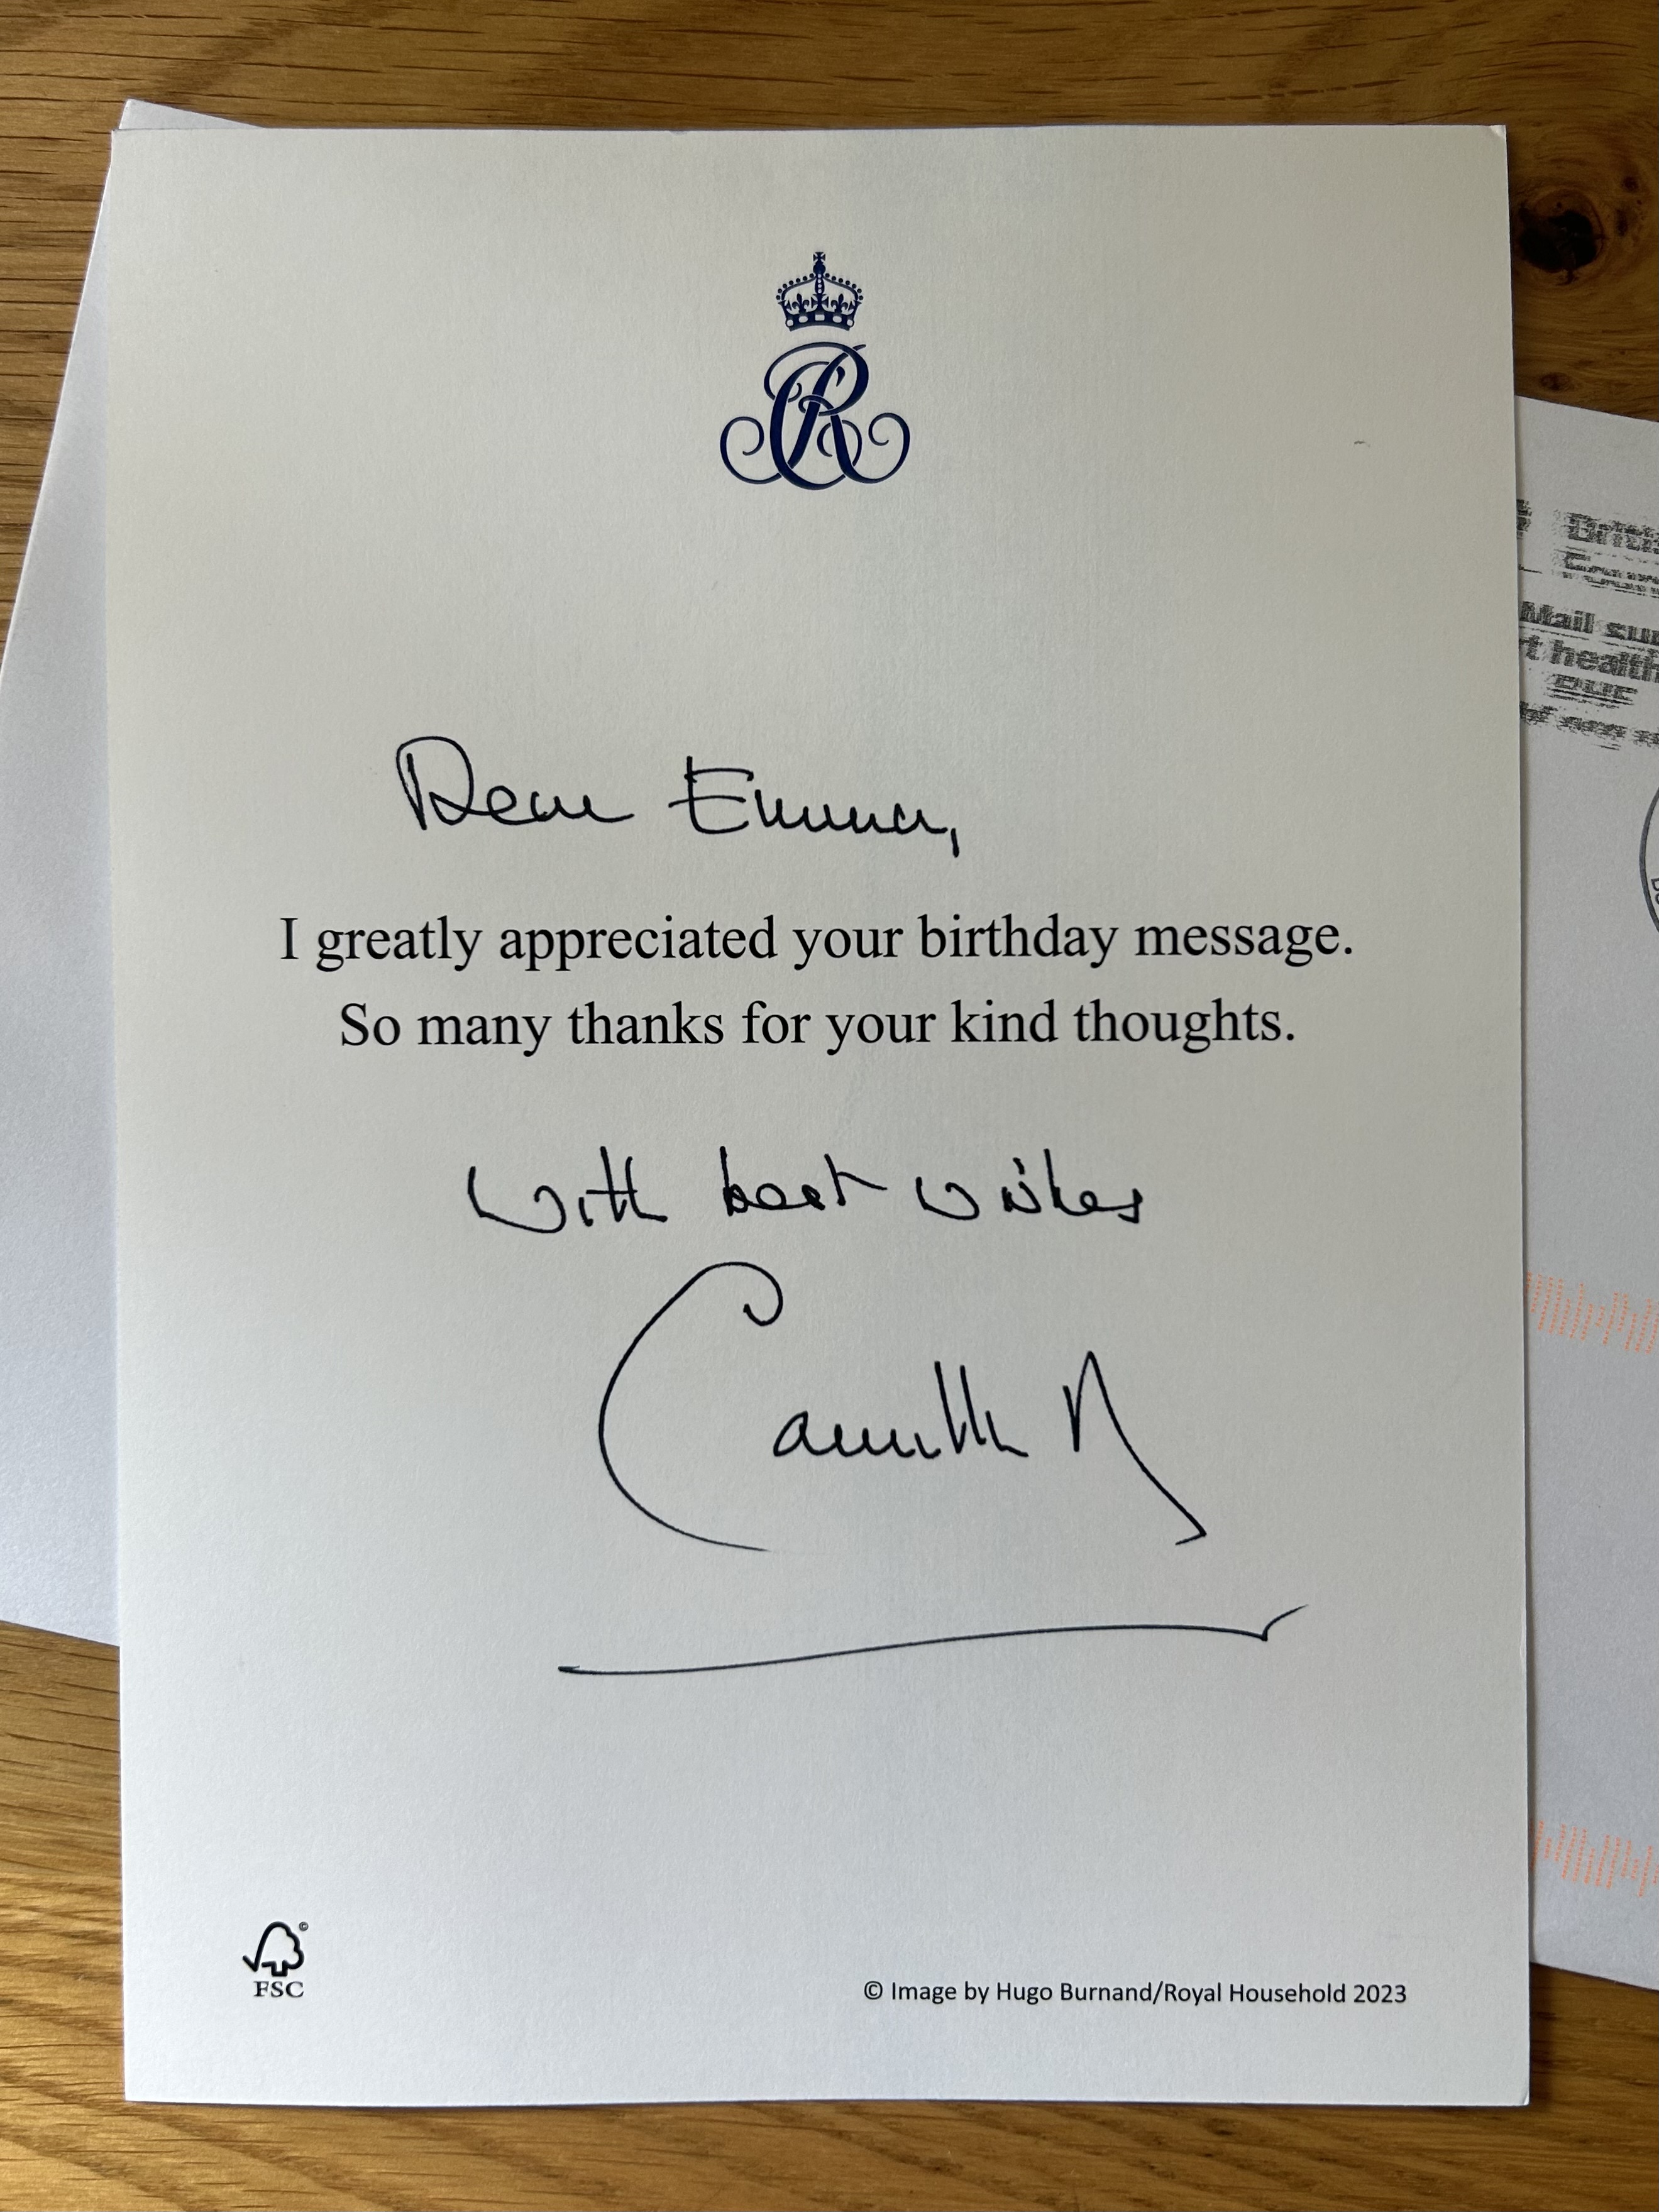 CR
Dear Emma,
I greatly appreciated your birthday message.
So many thanks for your kind thoughts.
With best wishes
Camilla R
FSC
© Image by Hugo Burnand/Royal Household 2023
Mail
health